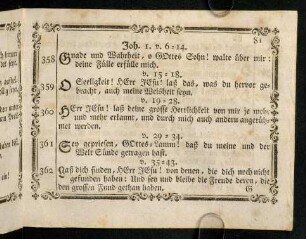 81
Joh. 1. v. 6-14.
358 Gnade und Wahrheit, o GOttes Sohn! walte über mir:
deine Fülle erfülle mich.
v. 15-18.
359 O Seeligkeit! HErr JEsu! laß das, was du hervor ge-
bracht, auch meine Weisheit seyn.
v. 19-28.
360 Herr JEsu! laß deine grosse Herrlichkeit von mir je mehr
und mehr erkannt, und durch mich auch andern angerüh-
met werden.
v. 29-34.
361 Sey gepriesen, GOttes-Lamm! daß du meine und der
Welt Sünde getragen hast.
v. 35-43.
362 Laß dich finden, HErr JEsu! von denen, die dich noch nicht
gefunden haben: Und sey und bleibe die Freude derer, die
den grossen Fund gethan haben.
G